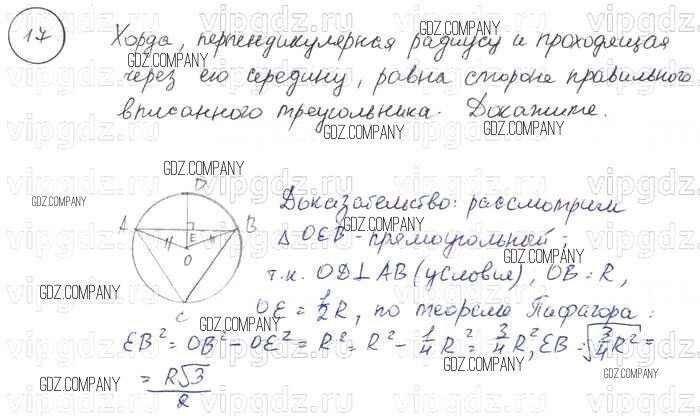 17 Хорда, перпендикулярная радиусу и проходящая
через его середину, равна стороне правильного
вписанного треугольника. Докажите.
D
A
B
E
R
R
O
C
Доказательство: рассмотрим
Δ OEB - прямоугольный,
т.к. OD⊥AB (условия), OB = R,
OE = 1/2 R, по теореме Пифагора:
EB² = OB² - OE² = R² = R² - 1/4 R² = 3/4 R², EB = √(3/4 R²) =
= R√3/2
GDZ.COMPANY
vipgdz.ru